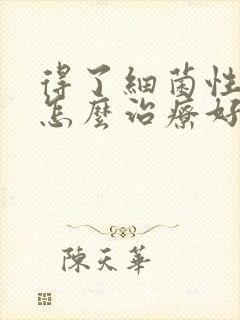 得了細菌性
怎麼治療好
陳天華